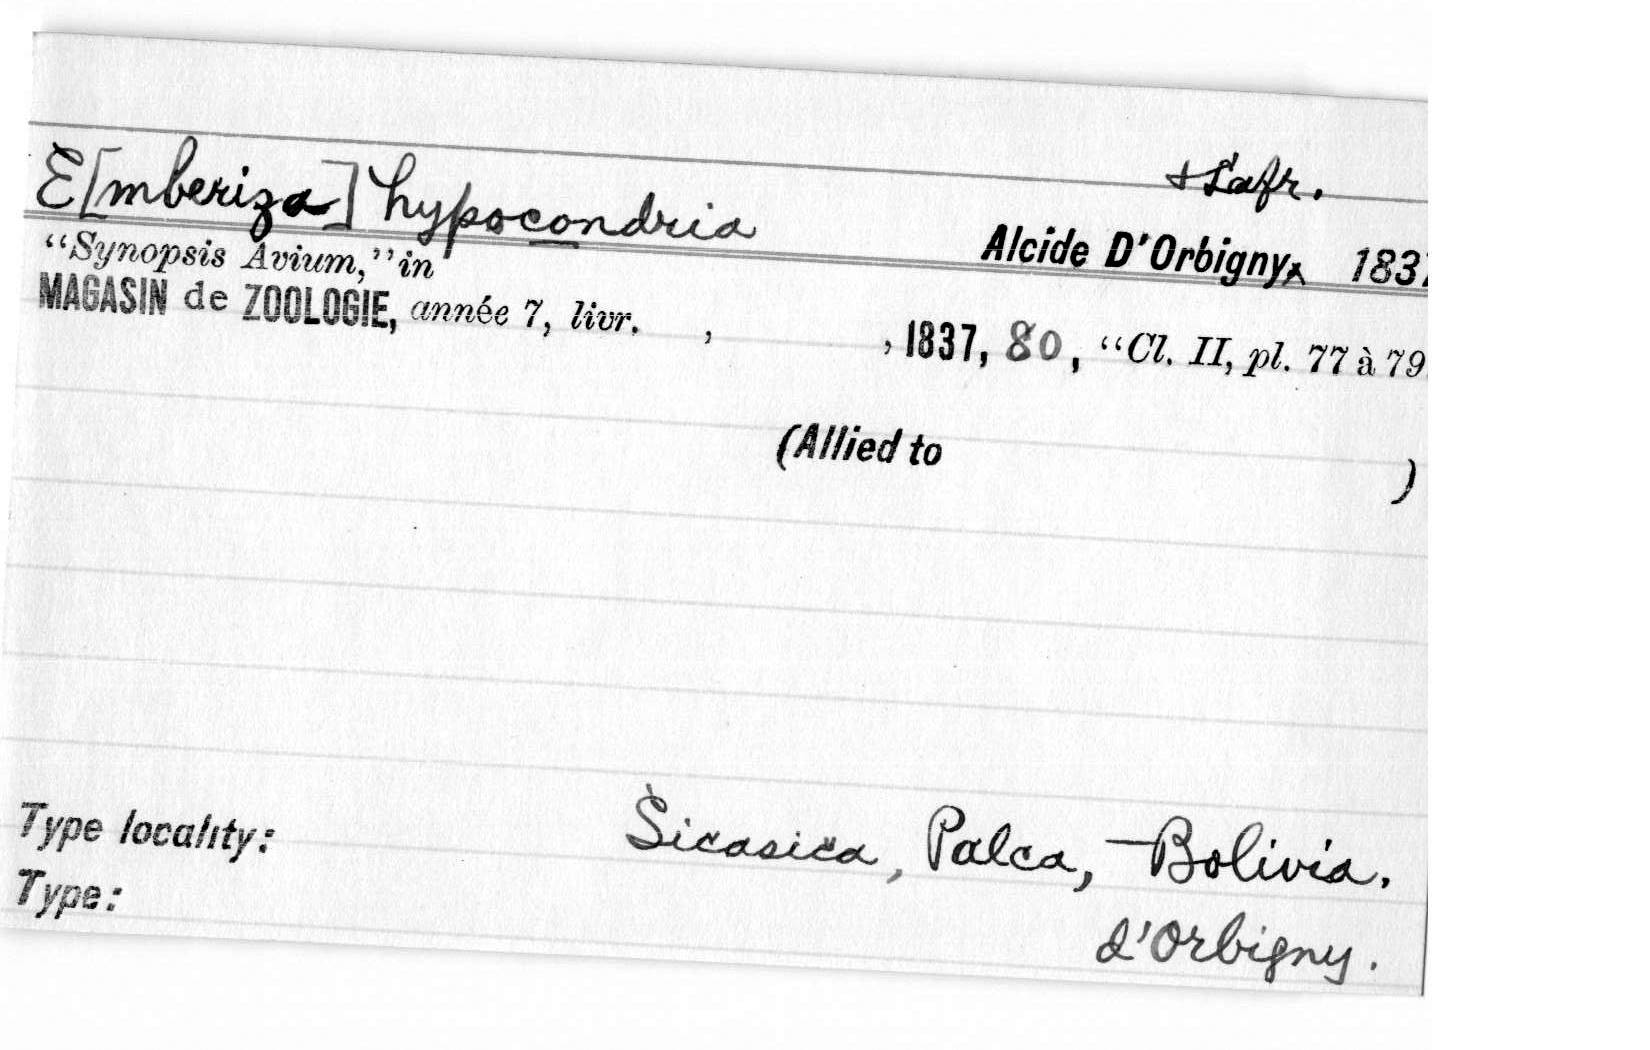 & Lafr.
E[mberiza] hypocondria
Alcide D'Orbigny 1837
"Synopsis Avium," in
MAGASIN de ZOOLOGIE, année 7, livr. , , 1837, 80, "Cl. II, pl. 77 à 79
(Allied to )
Type locality: Sicasica, Palca, Bolivia.
Type: d'Orbigny.